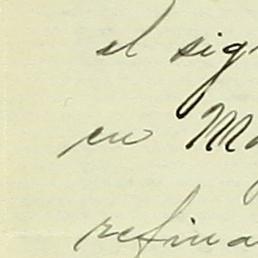 el sig
en Ma
refina